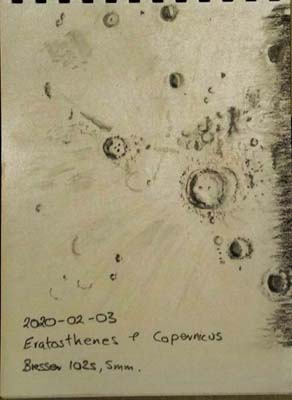 2020-02-03
Eratosthenes & Copernicus
Bresser 102s, 5mm.